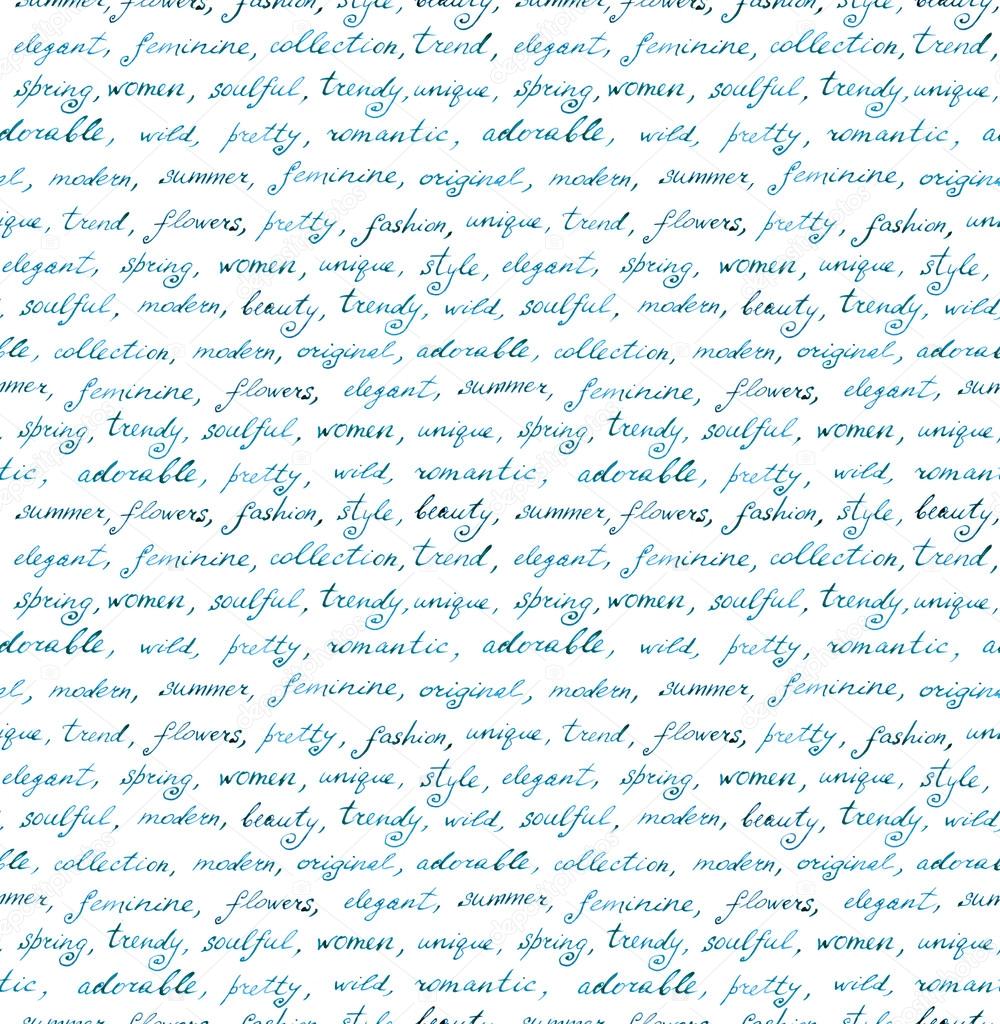 summer, flowers, fashion, style, beauty, summer, flowers, fashion, style, beauty,
elegant, feminine, collection, trend, elegant, feminine, collection, trend,
spring, women, soulful, trendy, unique, spring, women, soulful, trendy, unique,
dorable, wild, pretty, romantic, adorable, wild, pretty, romantic, a
al, modern, summer, feminine, original, modern, summer, feminine, origin
ique, trend, flowers, pretty, fashion, unique, trend, flowers, pretty, fashion, un
elegant, spring, women, unique, style, elegant, spring, women, unique, style,
, soulful, modern, beauty, trendy, wild, soulful, modern, beauty, trendy, wild
ble, collection, modern, original, adorable, collection, modern, original, adorab
mmer, feminine, flowers, elegant, summer, feminine, flowers, elegant, sum
, spring, trendy, soulful, women, unique, spring, trendy, soulful, women, unique
tic, adorable, pretty, wild, romantic, adorable, pretty, wild, roman
summer, flowers, fashion, style, beauty, summer, flowers, fashion, style, beauty,
elegant, feminine, collection, trend, elegant, feminine, collection, trend,
spring, women, soulful, trendy, unique, spring, women, soulful, trendy, unique,
dorable, wild, pretty, romantic, adorable, wild, pretty, romantic, a
al, modern, summer, feminine, original, modern, summer, feminine, origin
ique, trend, flowers, pretty, fashion, unique, trend, flowers, pretty, fashion, un
elegant, spring, women, unique, style, elegant, spring, women, unique, style,
, soulful, modern, beauty, trendy, wild, soulful, modern, beauty, trendy, wild
ble, collection, modern, original, adorable, collection, modern, original, adorab
mmer, feminine, flowers, elegant, summer, feminine, flowers, elegant, sum
, spring, trendy, soulful, women, unique, spring, trendy, soulful, women, unique
tic, adorable, pretty, wild, romantic, adorable, pretty, wild, roman
summer, flowers, fashion, style, beauty, summer, flowers, fashion, style, beauty